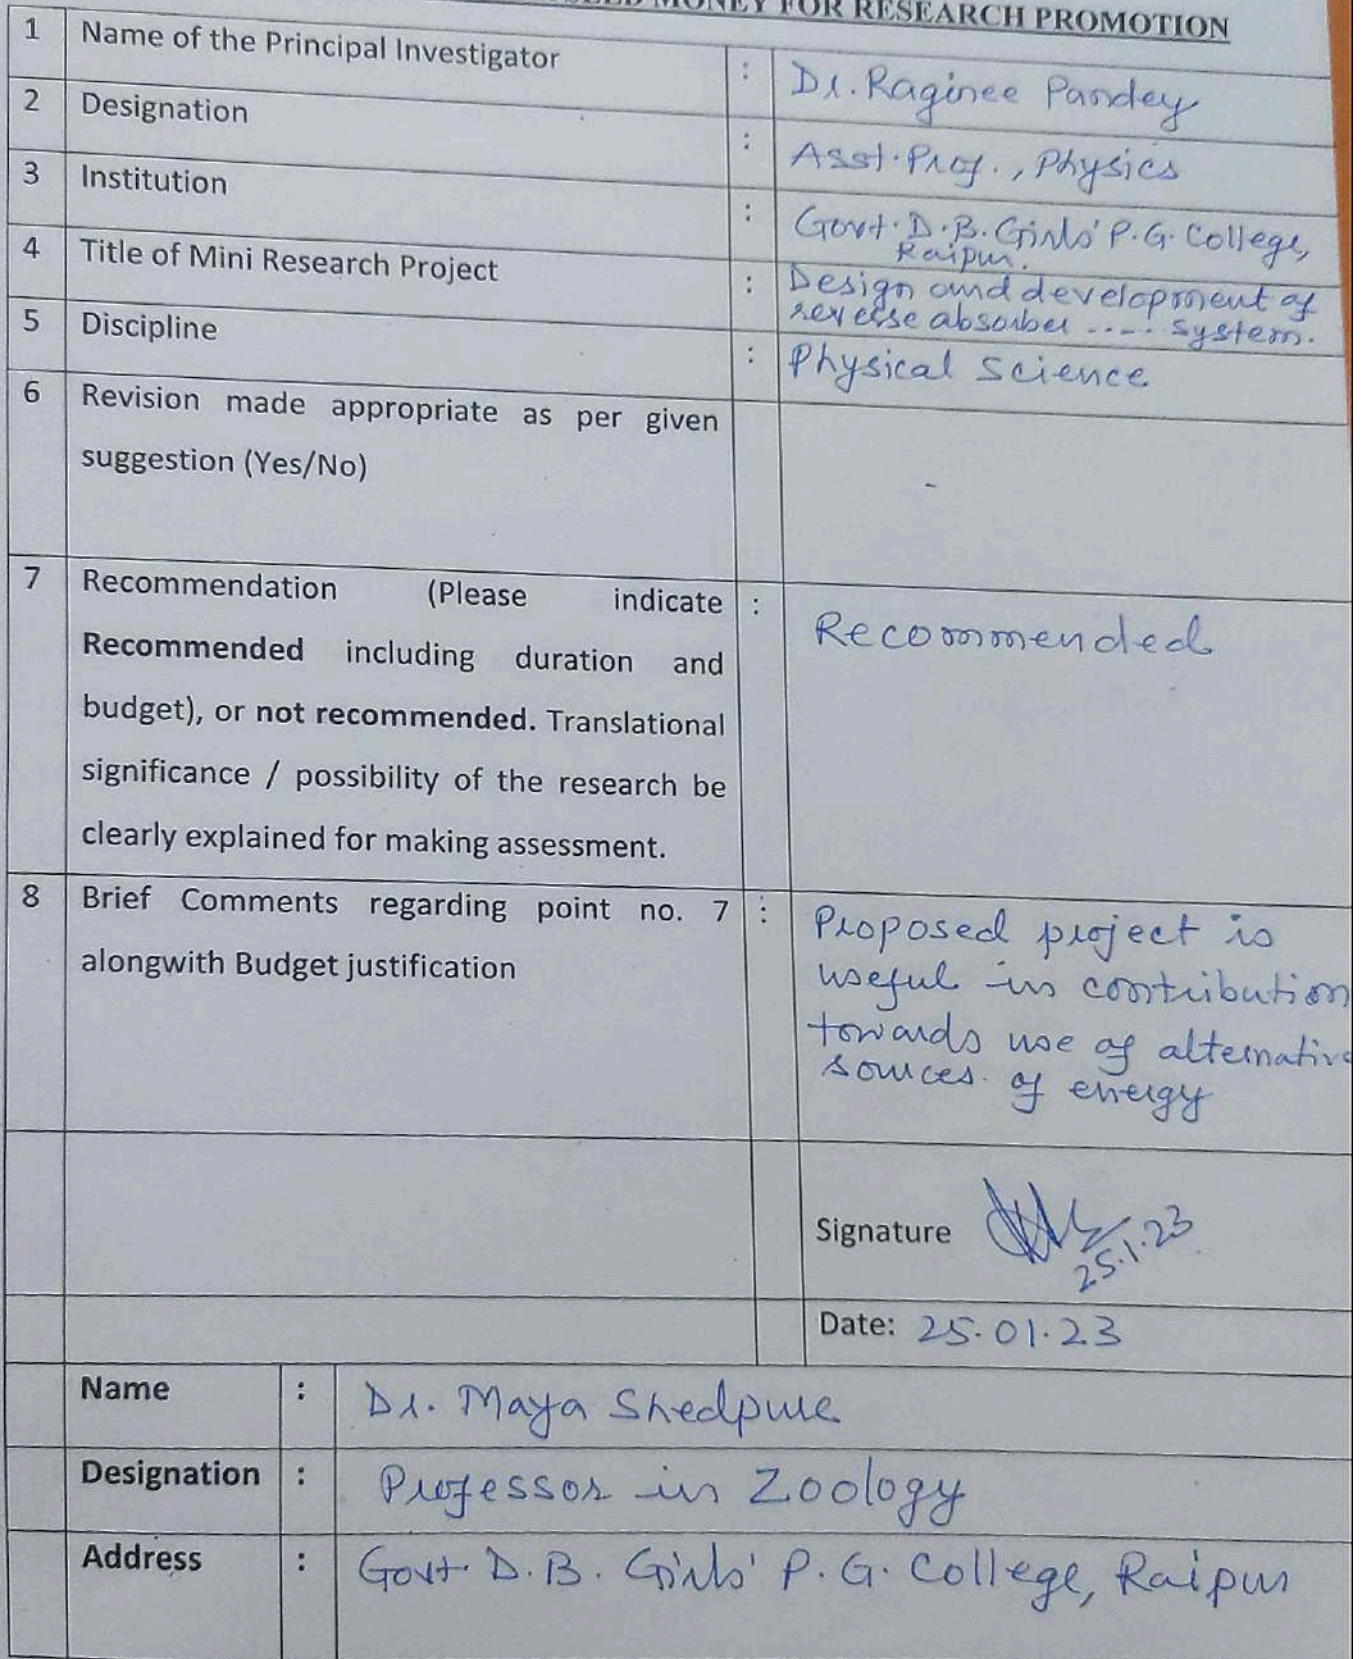 MONEY FOR RESEARCH PROMOTION
1 Name of the Principal Investigator : Dr. Raginee Pandey
2 Designation : Asst. Prof., Physics
3 Institution : Govt. D.B. Girls' P.G. College,
Raipur.
4 Title of Mini Research Project : Design and development of
reverse absorber ..... system.
5 Discipline : Physical Science
6 Revision made appropriate as per given
suggestion (Yes/No) -
7 Recommendation (Please indicate : Recommended
Recommended including duration and
budget), or not recommended. Translational
significance / possibility of the research be
clearly explained for making assessment.
8 Brief Comments regarding point no. 7 :
alongwith Budget justification
Proposed project is
useful in contribution
towards use of alternative
sources of energy
Signature
25.1.23
Date: 25.01.23
Name : Dr. Maya Shedpure
Designation : Professor in Zoology
Address : Govt. D.B. Girls' P.G. College, Raipur